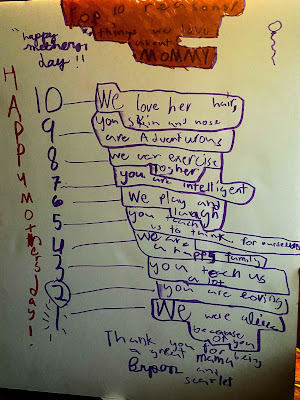 Top 10 reasons/
things we love
about
MOMMY
"happy
mothers
day!!
HAPPY MOTHERS DAY!
10 We love her hair,
skin and nose
9 you are Adventurous
8 we exercise
togher
7 you are intelligent
6 We play and
laugh
5 you teach
us to think for ourselves
4 We are
a happy family
3 you teach us
a lot
2 you are loving
1 We were alive
because
of you
Thank you for being
a great mama
and
scarlet